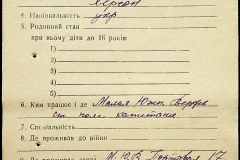 Херсон
4. Національність укр
5. Родинний стан
при ньому діти до 16 років:
1)
2)
3)
4)
5)
6. Ким працює і де Малая Южн. Верфь
ст. пом. капитана
7. Спеціяльність
8. Де проживав до війни